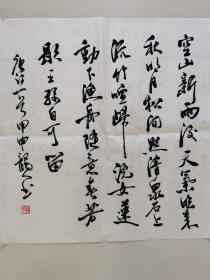 空山新雨後天氣晚來
秋明月松間照清泉石上
流竹喧歸浣女蓮
動下漁舟隨意春芳
歇王孫自可留
唐詩一首甲申